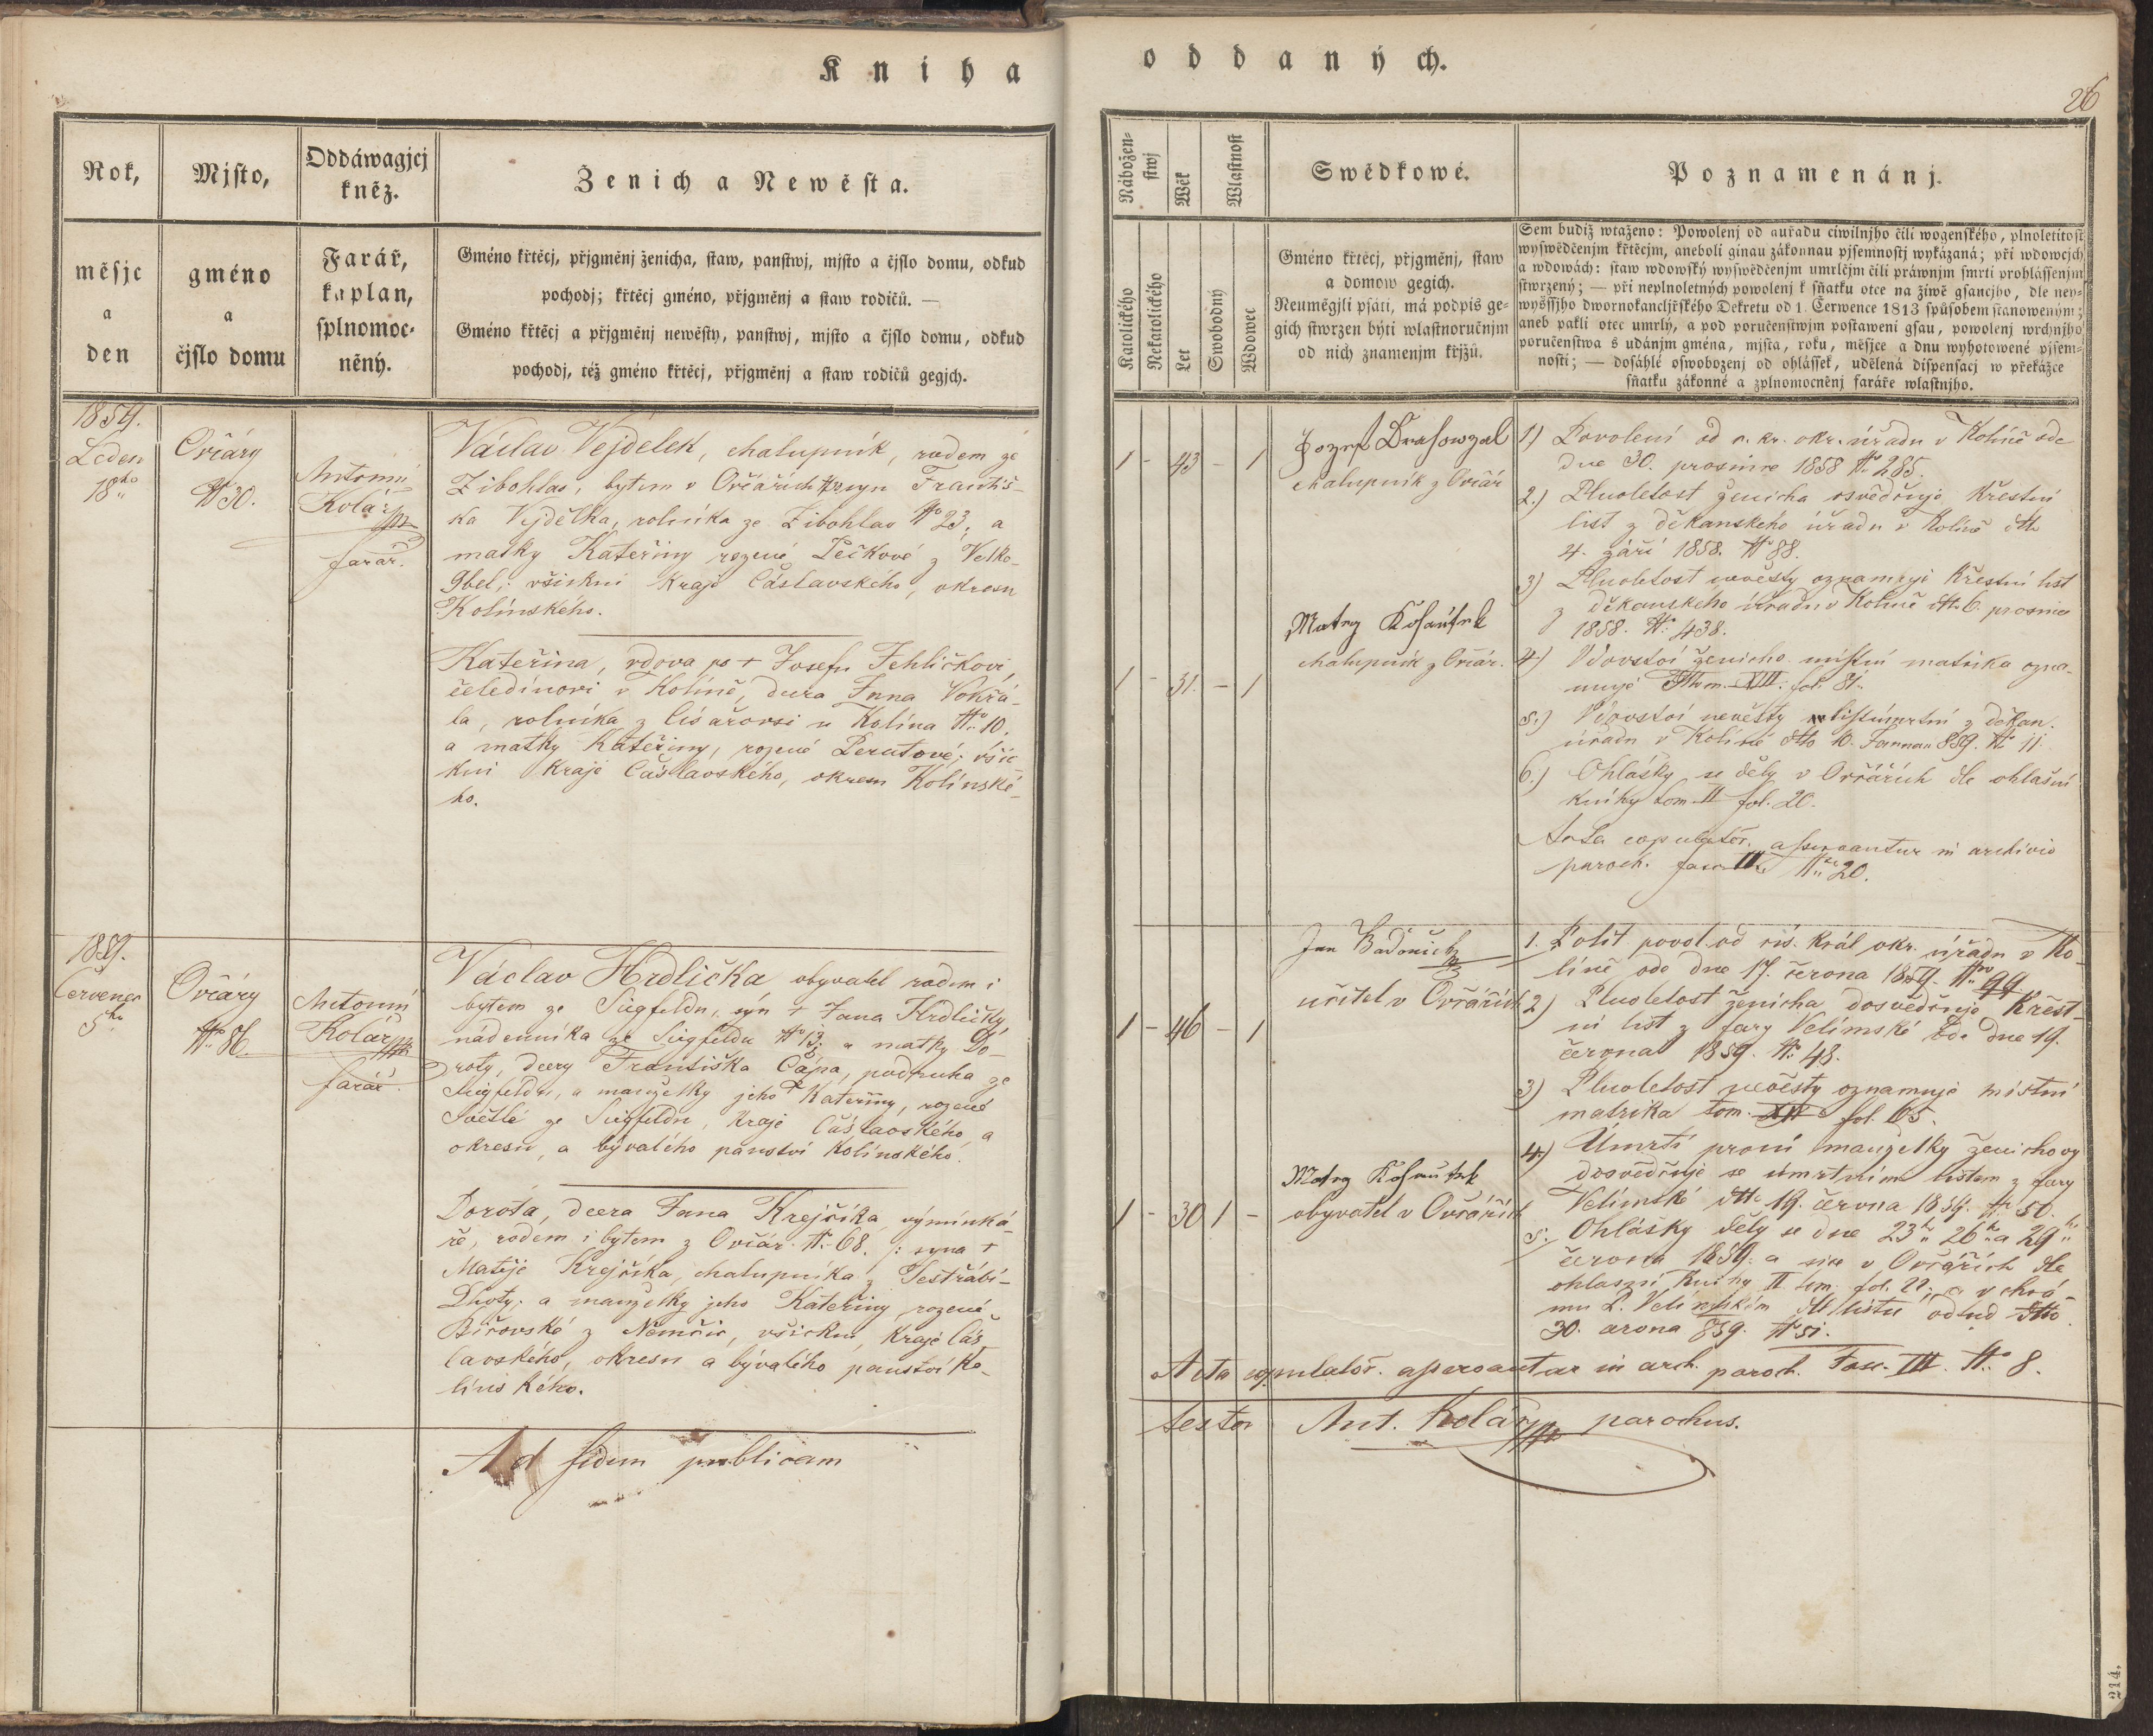 Kniha
oddaných.
26
Rok,
měsjc
a
den
Mjsto,
gméno
a
čjslo domu
Oddáwagjcj
kněz.
Farář,
kaplan,
splnomoc-
něný.
Ženich a Newěsta.
Gméno křtěcj, přjgměnj ženicha, staw, panstwj, mjsto a čjslo domu, odkud
pochodj; křtěcj gméno, přjgměnj a staw rodičů. —
Gméno křtěcj a přjgměnj newěsty, panstwj, mjsto a čjslo domu, odkud
pochodj, též gméno křtěcj, přjgměnj a staw rodičů gegjch.
Nábožen-
stwj
Wěk
Wlastnost
Katolického
Nekatolického
Let
Swobodný
Wdowec
Swědkowé.
Gméno křtěcj, přjgměnj, staw
a domow gegich.
Neuměgjli psáti, má podpis ge-
gich stwrzen býti wlastnoručnjm
od nich znamenjm křjžů.
Poznamenánj.
Sem budiž wtaženo: Powolenj od auřadu ciwilnjho čili wogenského, plnoletitost
wyswědčenjm křtěcjm, aneboli ginau zákonnau pjsemnostj wykázaná; při wdowcjch
a wdowách: staw wdowský wyswědčenjm umrlčjm čili práwnjm smrti prohlássenjm
stwrzený; — při neplnoletných powolenj k sňatku otce na žiwě gsaucjho, dle ney-
wyšssjho dwornokancljřského Dekretu od 1. Čerwence 1813 spůsobem stanoweným;
aneb pakli otec umrlý, a pod poručenstwjm postaweni gsau, powolenj wrchnjho
poručenstwa s udánjm gména, mjsta, roku, měsjce a dnu wyhotowené pjsem-
nosti; — dosáhlé oswobozenj od ohlássek, udělená dispensacj w překážce
sňatku zákonné a zplnomocněnj faráře wlastnjho.
1859.
Leden
18ho
Ovčáry
No 30.
Antonín
Kolář
farář.
Václav Vejdelek, chalupník, rodem ze
Zibohlav, bytem v Ovčářích syn Františ-
ka Vejdělka, rolníka ze Zibohlav No 23, a
matky Kateřiny rozené Pečkové z Velko-
Gbel; všickni kraje Čáslavského, okresu
Kolínského.
Kateřina, vdova po + Josefu Jehličkovi,
čeledínovi v Kolíně, dcera Jana Vokřá-
la, rolníka z Lisařovsi u Kolína No 10.
a matky Kateřiny, rozené Perutové; všic-
kni kraje Čáslavského, okresu Kolínské-
ho.
1 - 43 - 1
1 - 31. - 1
Jozef Drahowzal
chalupník z Ovčár
Matěg Kohautek
chalupník z Ovčár.
1) Dovolení od c. kr. okr. úřadu v Kolíně ode
dne 30. prosince 1858 No 285.
2.) Plnoletost ženicha osvědčuje křestní
list z děkanského úřadu v Kolíně dtto
4. září 1858. No 88.
3) Plnoletost nevěsty oznamuje křestní list
z děkanského úřadu v Kolíně dtto 6. prosince
1858. No 438.
4) Vdovství ženicha místní matrika ozna-
muje Thom. XIII. fol. 81.
5.) Vdovství nevěsty list úmrtní z děkan.
úřadu v Kolíně dtto 10. Januar 859. No 11.
6.) Ohlášky se děly v Ovčářích dle ohlašní
knihy tom. II fol. 20.
Acta copulator. asservantur in archivio
paroch. fasc. III. No 20.
1859.
Červenec
5ho
Ovčáry
No 86.
Antonín
Kolář
farář.
Václav Hrdlička obyvatel rodem i
bytem ze Siegfeldu, syn + Jana Hrdličky
nádenníka ze Siegfeldu No 13; a matky Do-
roty, dcery Františka Čápa, podruha ze
Siegfeldu, a manželky jeho Kateřiny, rozené
Světlé ze Siegfeldu, kraje Čáslavského, a
okresu, a bývalého panství Kolínského.
Dorota, dcera Jana Krejčíka, výminká-
ře, rodem i bytem z Ovčár No 68. /: syna +
Matěje Krejčíka, chalupníka z Jestřábí-
Lhoty; a manželky jeho Kateřiny rozené
Bičovské z Němčic, všickni, kraje Čás-
lavského, okresu a bývalého panství Ko-
línského.
1 - 46 - 1
1 - 30 1 -
Jan
učitel v Ovčářích
Matěg Kohautek
obyvatel v Ovčářích
1. Polit. povol. od cís. král. okr. úřadu v Ko-
líně ode dne 17. června 1859. No 99.
2) Plnoletost ženicha dosvědčuje křest-
ní list z fary Velímské ode dne 19.
června 1859. No 48.
3) Plnoletost nevěsty oznamuje místní
matrika tom. XII fol. 65.
4) Úmrtí první manželky ženichovy
dosvědčuje se úmrtním listem z fary
Velímské dtto 19. června 1859. No 50.
5. Ohlášky děly se dne 23ho 26ho a 29ho
června 1859. a sice v Ovčářích dle
ohlašní knihy II tom. fol. 22; a v chrá-
mu P. Velímském dle listu odtud dtto
30. června 859. No 51.
Acta copulator. asservantur in arch. paroch. Fasc. III. No 8.
Ad fidem publicam
testor Ant. Kolář parochus.
214.